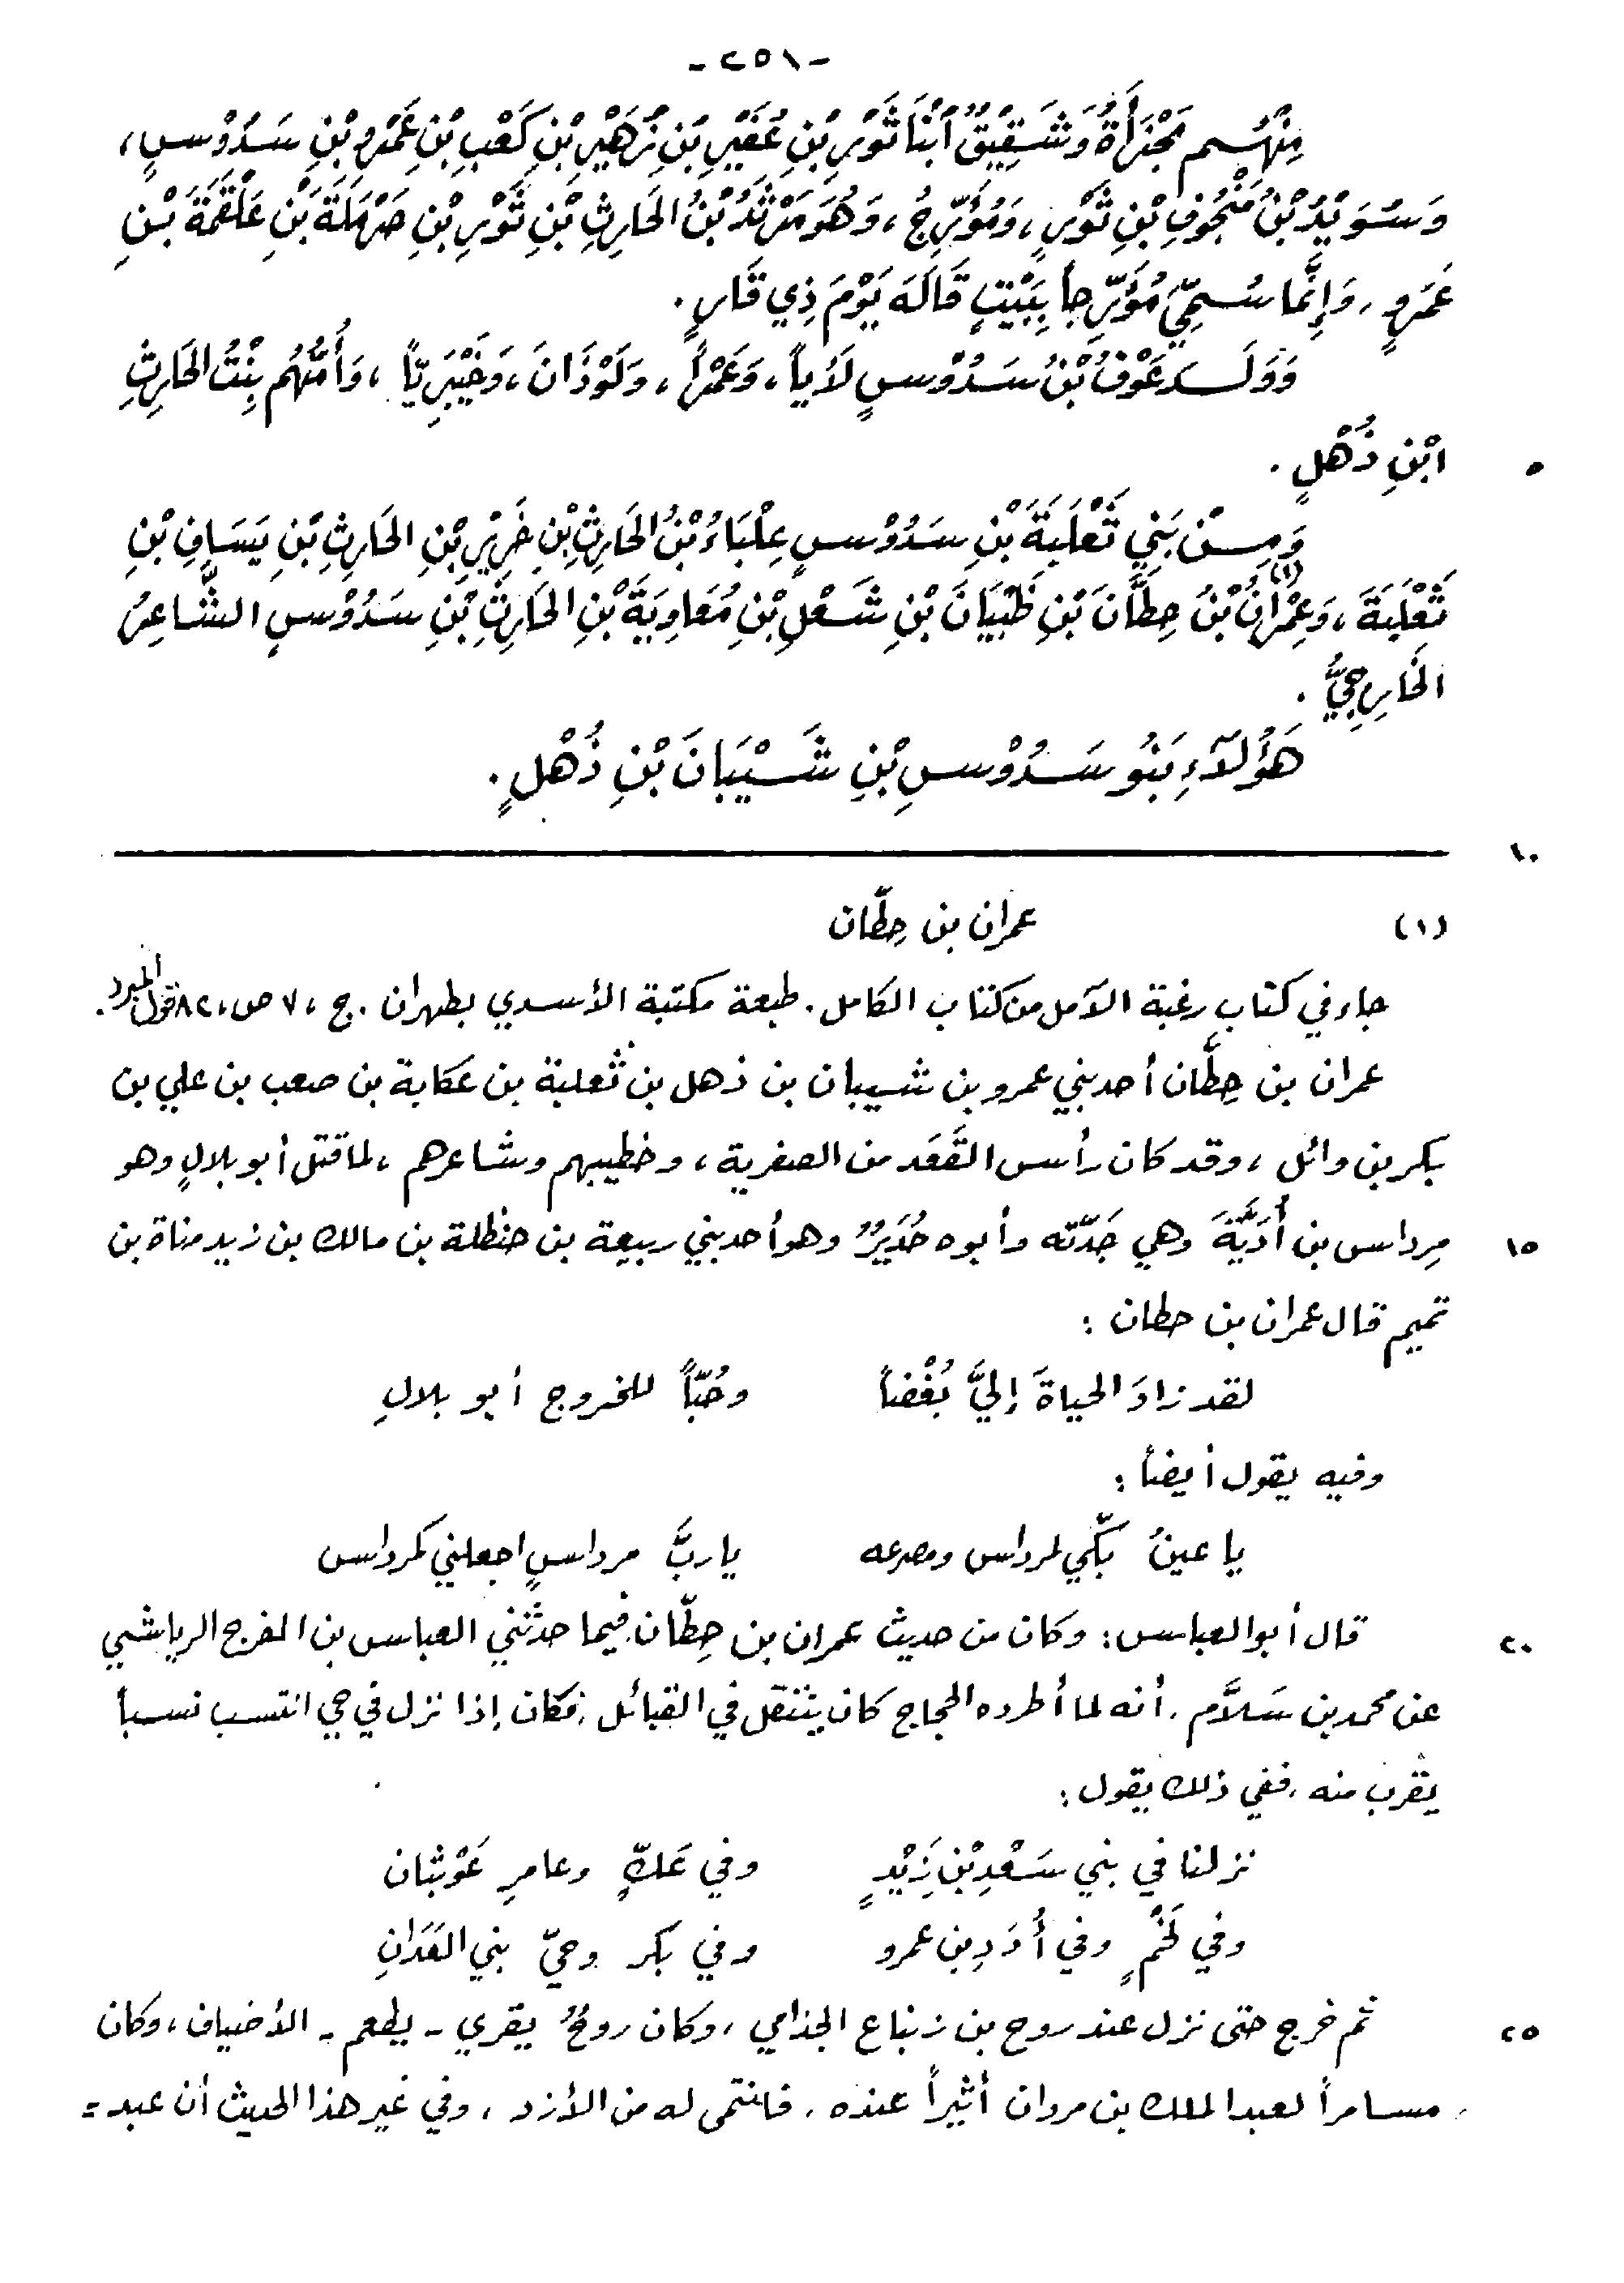 -٢٥١-
مِنْهُم مَجْزَأَةُ وَشَقِيْقُ ابْنَا ثَوْرِ بْنِ عُفَيْرِ بْنِ زُهَيْرِ بْنِ كَعْبِ بْنِ عَمْرِو بْنِ سَدُوْسٍ،
وَسُوَيْدُ بْنُ مَنْجُوفِ بْنِ ثَوْرٍ، وَمُؤَرِّجُ، وَهُوَ مَرْثَدُ بْنُ الحَارِثِ بْنِ ثَوْرِ بْنِ حَرْمَلَةَ بْنِ عَلْقَمَةَ بْنِ
عَمْرٍو، وَإِنَّمَا سُمِّيَ مُؤَرِّجاً بِبَيْتٍ قَالَهَ يَوْمَ ذِي قَارٍ.
وَوَلَدَ عَوْفُ بْنُ سَدُوْسٍ لَأْياً، وَعَمْراً، وَلَوْذَانَ، وَخَيْبَرِيّاً، وَأُمُّهُم بِنْتُ الحَارِثِ
ابْنِ ذُهْلٍ.
٥
وَمِنْ بَنِي ثَعْلَبَةَ بْنِ سَدُوْسٍ عِلْبَاءُ بْنُ الحَارِثِ بْنِ خَرِيْرِ بْنِ الحَارِثِ بْنِ يَسَافِ بْنِ
ثَعْلَبَةَ، وَعِمْرانُ (١) بْنُ حِطَّانَ بْنِ ظَبْيَانَ بْنِ شَعْلِ بْنِ مُعَاوِيَةَ بْنِ الحَارِثِ بْنِ سَدُوْسٍ الشَّاعِرُ
الخَارِجِيُّ.
هَؤُلَآءِ بَنُو سَدُوْسِ بْنِ شَيْبَانَ بْنِ ذُهْلٍ.
١٠
(١) عمران بن حِطّان
جاء في كتاب رغبة الآمل من كتاب الكامل. طبعة مكتبة الأسدي بطهران. ج، ٧ ص، ٨٢ قول المبرد.
عمران بن حِطَّان أحد بني عمرو بن شيبان بن ذهل بن ثعلبة بن عكابة بن صعب بن علي بن
بكر بن وائل، وقد كان رأس القَعَد من الصفرية، وخطيبهم وشاعرهم، لما قتل أبو بلالٍ وهو
مِرداس بن أُدَيَّةَ وهي جَدّته وأبوه حُدَيْرٌ وهو أحد بني ربيعة بن حنظلة بن مالك بن زيد مناة بن
١٥
تميم قال عمران بن حطان:
لقد زادَ الحياةَ إليَّ بُغْضاً وحُبّاً للخروج أبو بلالِ
وفيه يقول أيضاً:
يا عينُ بكّي لمرداس ومصرعه يا ربَّ مرداسٍ اجعلني كمرداس
قال أبو العباس: وكان من حديث عمران بن حِطّان فيما حدثني العباس بن الفرج الرياشي
٢٠
عن محمد بن سَلاَّم، أنه لما أطرده الحجاج كان يتنقل في القبائل، فكان إذا نزل في حي انتسب نسباً
يقرب منه، ففي ذلك يقول:
نزلنا في بني سَعْدِ بْنِ زَيْدٍ وفي عَكٍّ وعامرِ عَوْبثان
وفي لَخْمٍ وفي أُدَدِ بن عمرو وفي بكر وحيّ بني الغَدَانِ
ثم خرج حتى نزل عند روح بن زنباع الجذامي، وكان روحُ يقري - يطعم - الأضياف، وكان
٢٥
مسامراً لعبد الملك بن مروان أثيراً عنده، فانتمى له من الأزد، وفي غير هذا الحديث أن عبد =